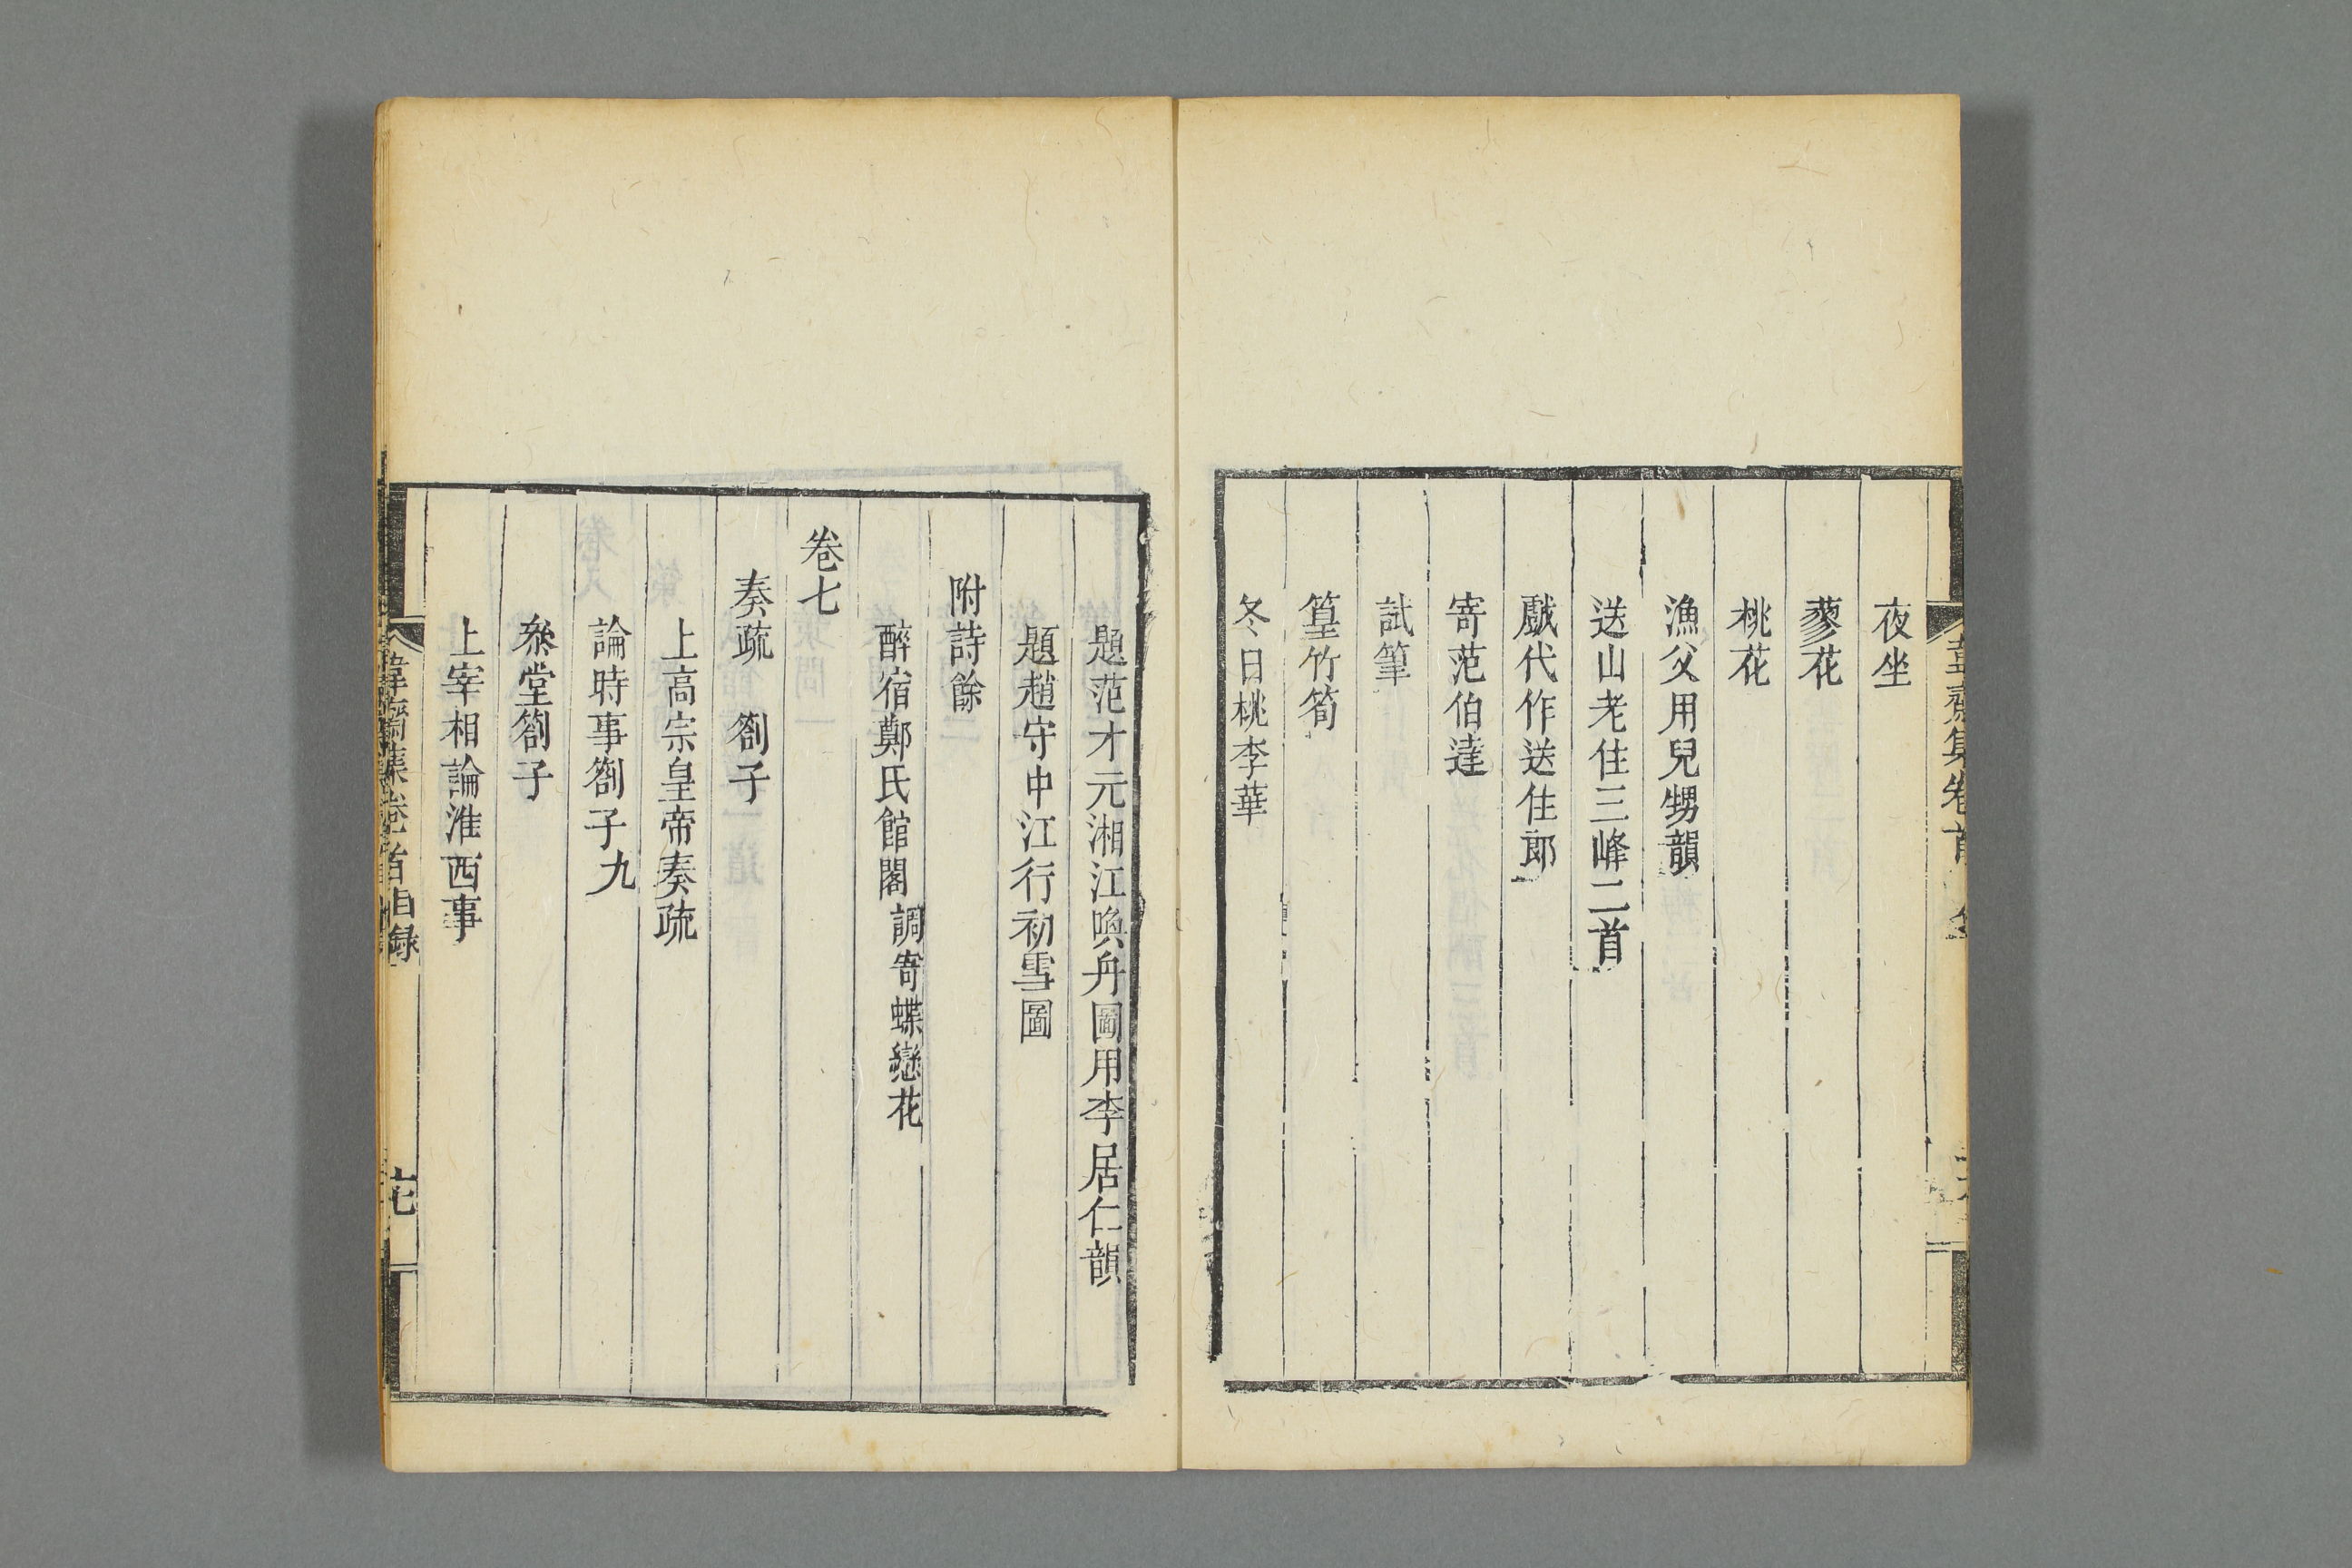 夜坐
蓼花
桃花
漁父用兒甥韻
送山老住三峰二首
戲代作送住郎
寄范伯達
試筆
篁竹筍
冬日桃李華
題范才元湘江喚舟圖用李居仁韻
題趙守中江行初雪圖
附詩餘
醉宿鄭氏館閣調寄蝶戀花
卷七
奏疏　劄子
上高宗皇帝奏疏
論時事劄子九
叅堂劄子
上宰相論淮西事
韋齋集卷首目録